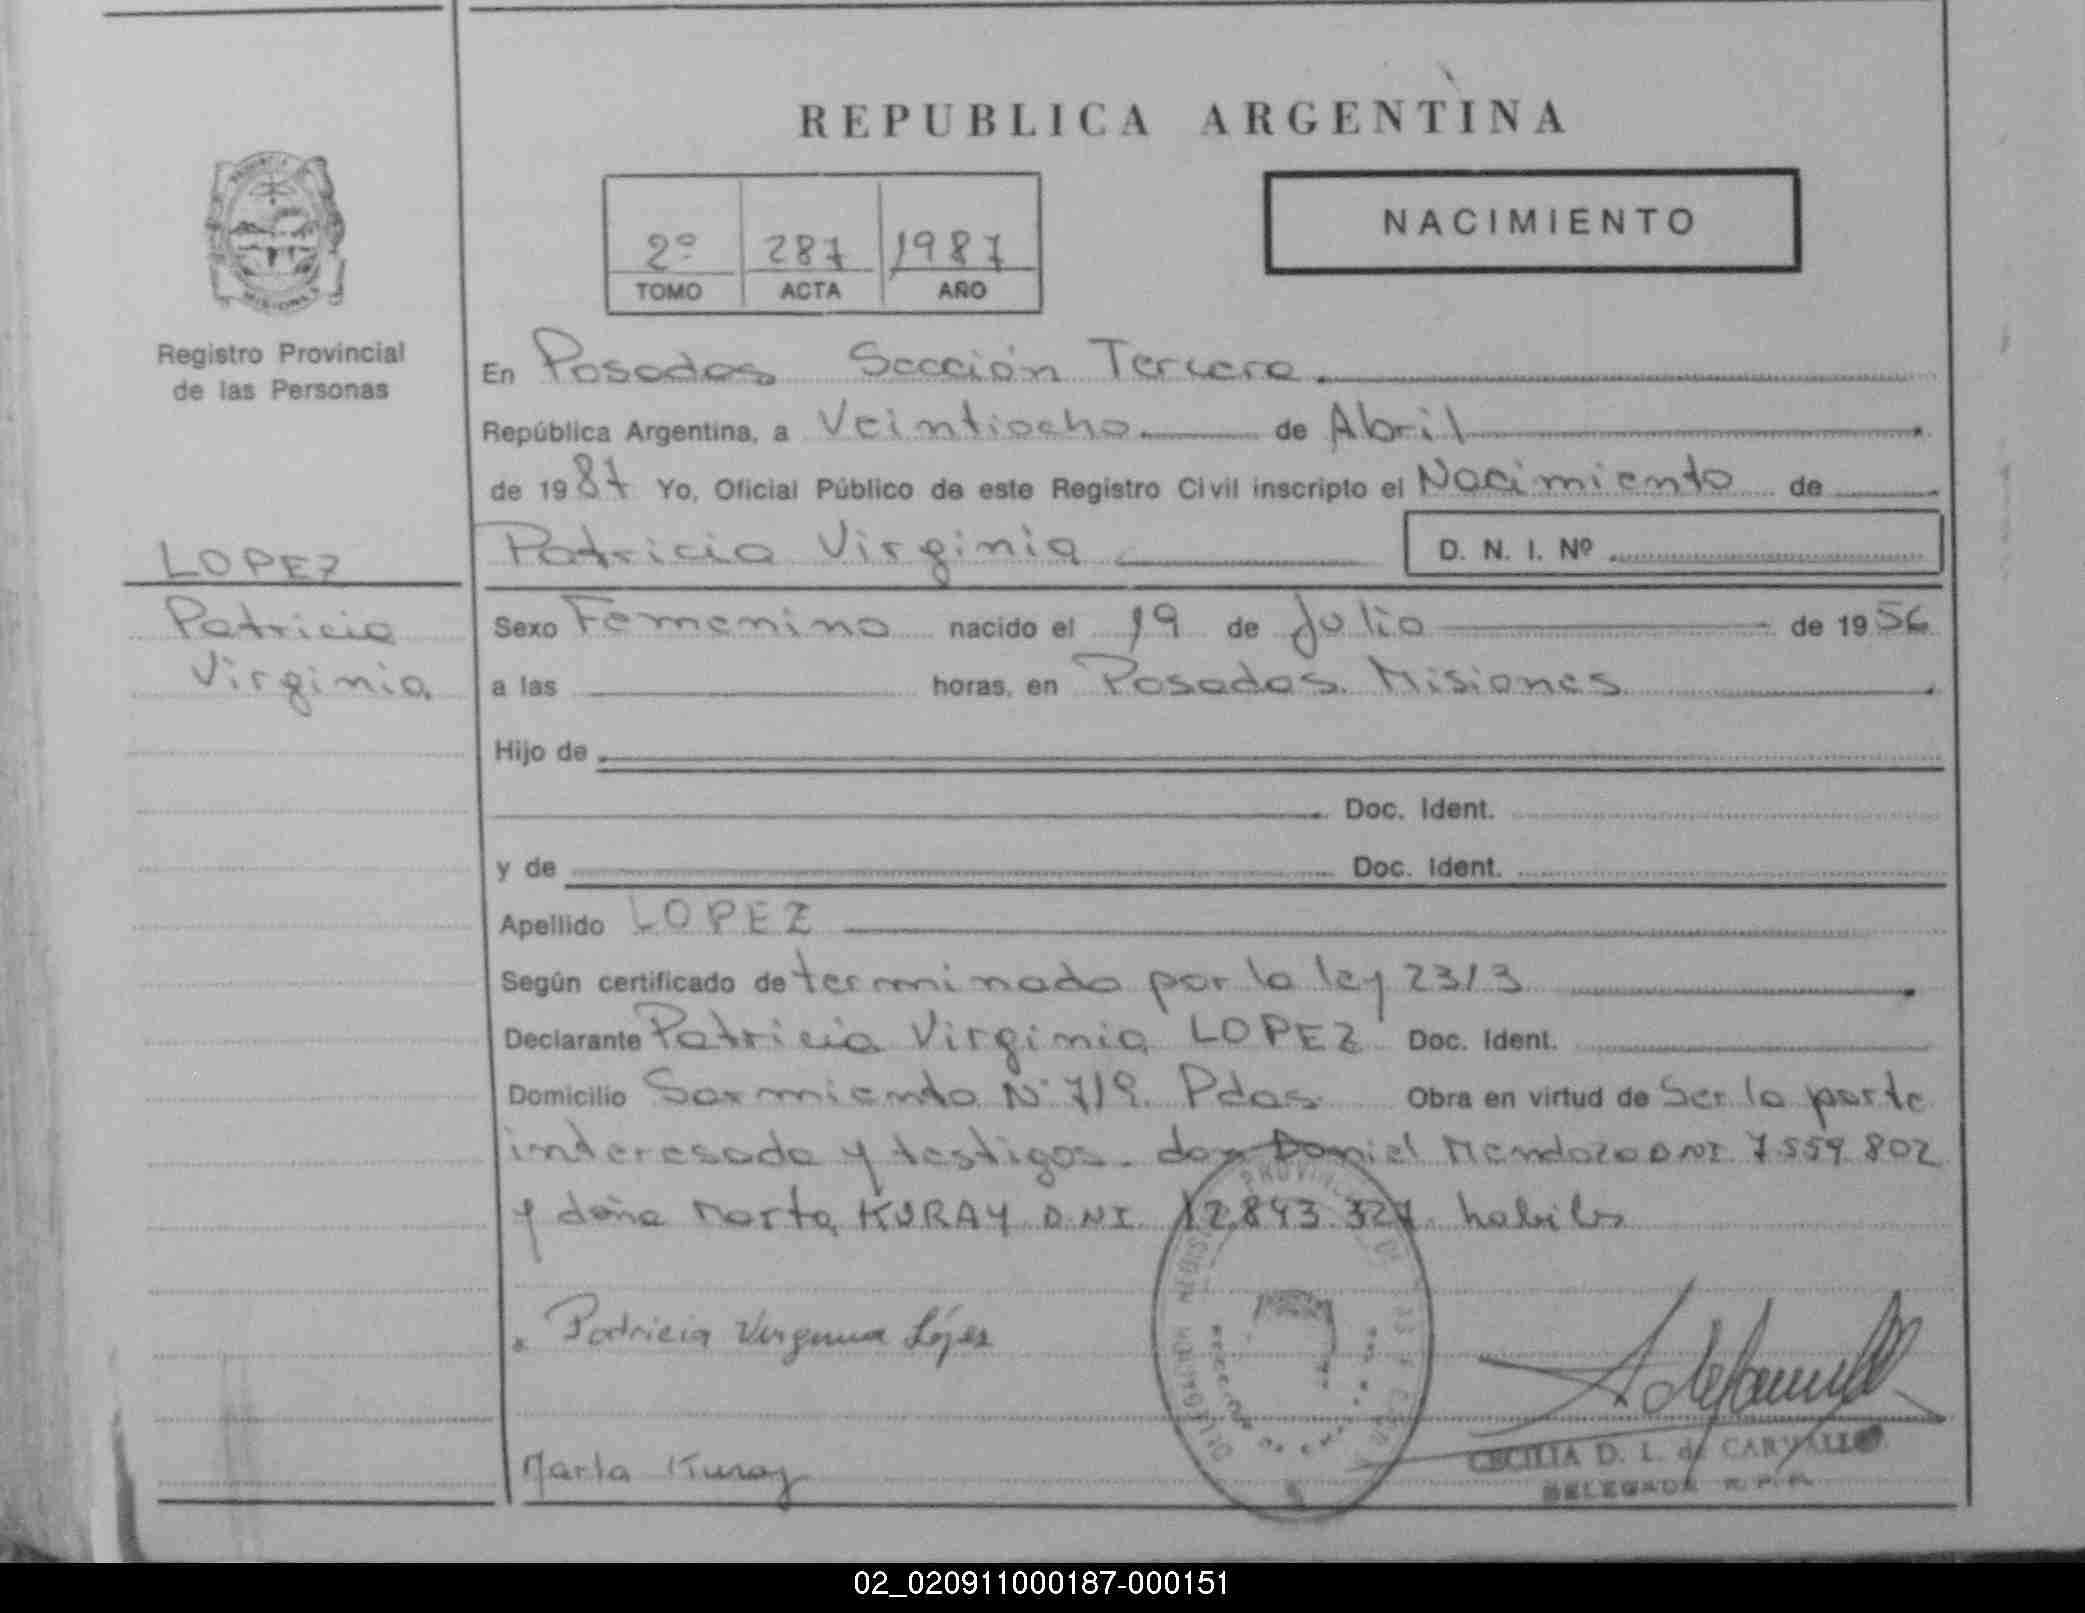 REPUBLICA ARGENTINA
NACIMIENTO
2º 287 1987
TOMO ACTA AÑO
PROVINCIA
MISIONES
Registro Provincial
de las Personas
LOPEZ
Patricia
Virginia
En Posadas Sección Tercera
República Argentina, a Veintiocho de Abril
de 1987 Yo, Oficial Público de este Registro Civil inscripto el Nacimiento de
Patricia Virginia D. N. I. Nº
Sexo Femenino nacido el 19 de Julio de 1956
a las horas, en Posadas. Misiones
Hijo de
Doc. Ident.
y de Doc. Ident.
Apellido LOPEZ
Según certificado determinado por la ley 23/3
Declarante Patricia Virginia LOPEZ Doc. Ident.
Domicilio Sarmiento Nº 719. Pdas. Obra en virtud de Ser la parte
interesada y testigos. don Daniel Mendoza DNI. 7.559.802
y doña Marta KURAY D.NI. 12.843.327 habiles
Patricia Virginia López
Marta Kuray
CECILIA D. L. de CARVALLO
DELEGADA R.P.P.
02_020911000187-000151